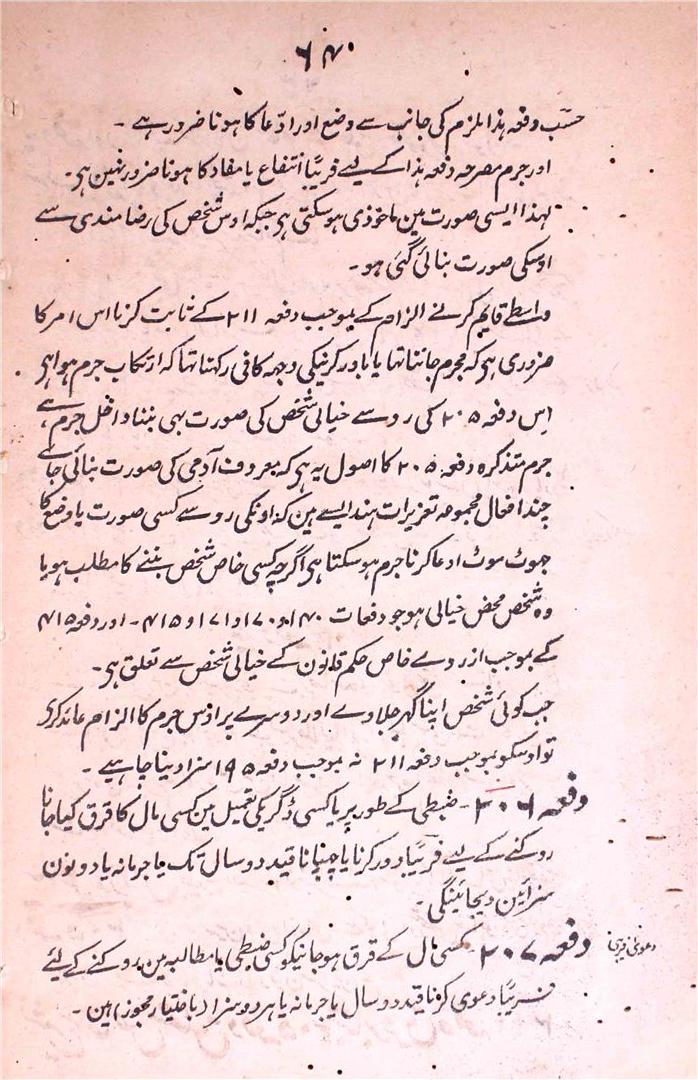 ۶۴۰
حسب دفعہ ہذا ملزم کی جانب سے وضع اور ادّعا کا ہونا ضرور ہے ۔
اور جرم مصرحہ دفعہ ہذا کے لیے فریبًا انتفاع یا مفاد کا ہونا ضرور نہین ہی۔
لہذا ایسی صورت مین ماخوذی ہو سکتی ہی جبکہ اوس شخص کی رضامندی سے
اوسکی صورت بنائی گئی ہو ۔
واسطے قایم کرنے الزام کے بموجب دفعہ ۲۱۱ کے ثابت کرنا اس امر کا
ضروری ہی کہ مجرم جانتا تہا یا باور کرنیکی وجہہ کافی رکہتا تہا کہ ارتکاب جرم ہوا ہی
اس دفعہ ۲۰۵ کی رو سے خیالی شخص کی صورت بہی بننا داخل جرم ہے
جرم متذکرہ دفعہ ۲۰۵ کا اصول یہ ہی کہ معروف آدمی کی صورت بنائی جاے
چند افعال مجموعہ تعزیرات ہند ایسے ہین کہ اونکی رو سے کسی صورت یا وضع کا
جہوٹ موٹ ادعا کرنا جرم ہو سکتا ہی اگرچہ کسی خاص شخص بننے کا مطلب ہو یا
وہ شخص محض خیالی ہو جو دفعات ۱۴۰ و ۱۷۰ و ۱۷۱ و ۴۱۵ - اور دفعہ ۴۱۵
کے بموجب از روے خاص حکم قانون کے خیالی شخص سے تعلق ہی۔
جب کوئی شخص اپنا گہر جلاوے اور دوسرے پر اوس جرم کا الزام عائد کری
تو اوسکو بموجب دفعہ ۲۱۱ نہ بموجب دفعہ ۱۹۵ سزا دینا چاہیے ۔
دفعہ ۲۰۶ - ضبطی کے طور پر یا کسی ڈگریکی تعمیل مین کسی مال کا قرق کیا جانا
روکنے کے لیے فریبًا دور کرنا یا چہپانا قید دو سال تک یا جرمانہ یا دونون
سزائین دیجائینگی ۔
دفعہ ۲۰۷ کسی مال کے قرق ہو جانیکو کسی ضبطی یا مطالبہ مین روکنے کے لیئے
فریبًا دعوی کرنا قید دو سال یا جرمانہ یا ہر دو سزا (باختیار مجوز) ہین ۔